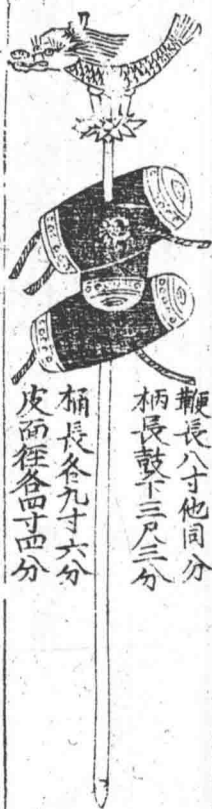 鞭長八寸他同分
柄長鼓下三尺三分
桶長各九寸六分
皮面徑各四寸四分